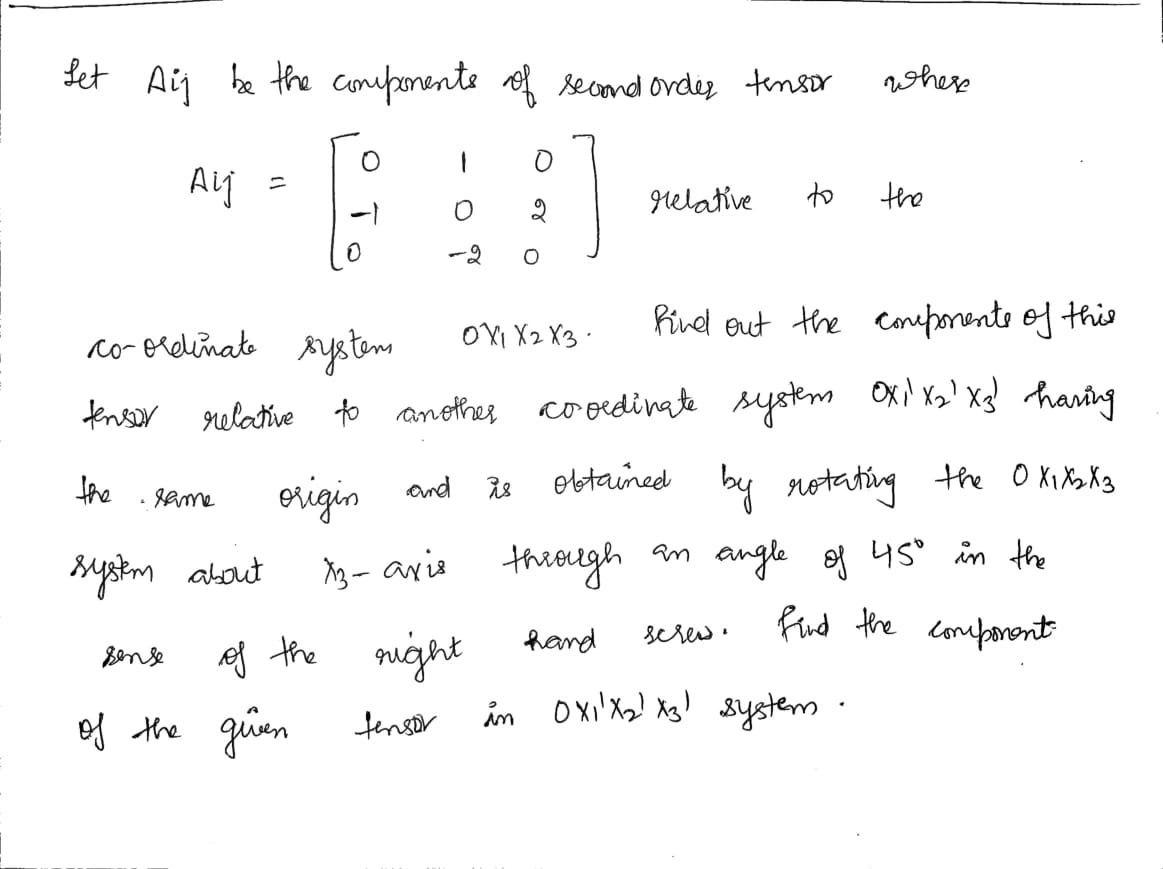 Let Aij be the components of second order tensor where
Aij = [ 0 1 0
-1 0 2 relative to the
0 -2 0 ]
co-ordinate system OX1 X2 X3. Find out the components of this
tensor relative to another coordinate system OX1' X2' X3' having
the same origin and is obtained by rotating the O X1X2X3
system about X3-axis through an angle of 45° in the
sense of the right hand screw. Find the component
of the given tensor in OX1'X2' X3' system.